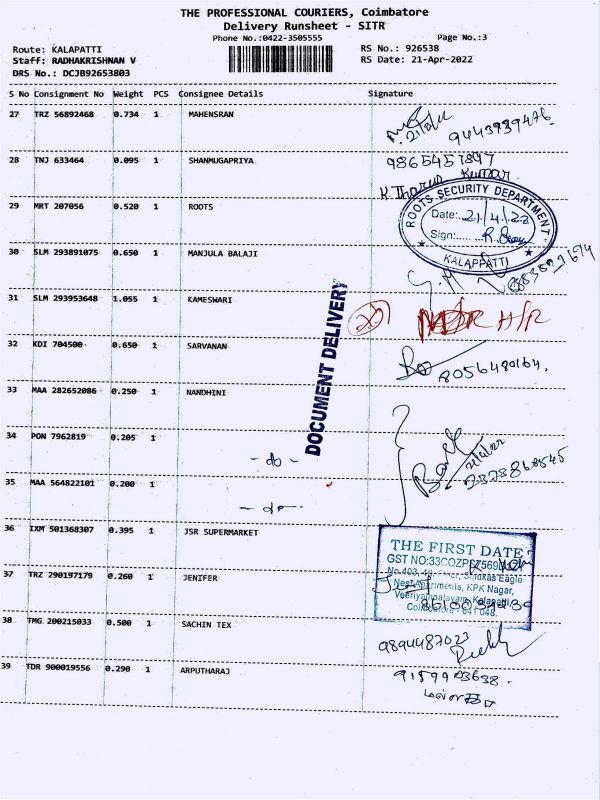 THE PROFESSIONAL COURIERS, Coimbatore
Delivery Runsheet - SITR
Phone No.:0422-3505555
Page No.:3
Route: KALAPATTI
RS No.: 926538
Staff: RADHAKRISHNAN V
RS Date: 21-Apr-2022
DRS No.: DCJB92653803
S No Consignment No Weight PCS Consignee Details Signature
27 TRZ 56892468 0.734 1 MAHENSRAN
21/4/22
9443939476
28 TNJ 633464 0.095 1 SHANMUGAPRIYA
9865457847
K. Tharun Kumar
29 MRT 207056 0.520 1 ROOTS
ROOTS SECURITY DEPARTMENT
Date:.. 21/4/22
Sign:......
KALAPPATTI
30 SLM 293891075 0.650 1 MANJULA BALAJI
31 SLM 293953648 1.055 1 KAMESWARI
DOCUMENT DELIVERY
H/R
32 KDI 704500 0.650 1 SARVANAN
8056480164.
33 MAA 282652086 0.250 1 NANDHINI
34 PON 7962819 0.205 1
- do -
35 MAA 564822101 0.200 1
- do -
36 IXM 501368307 0.395 1 JSR SUPERMARKET
THE FIRST DATE
No.403, 4th Floor, Srivikas Eagle
Nest Apartments, KPK Nagar,
Veeriyampalayam, Kalapatti,
Coimbatore - 641 048.
37 TRZ 290197179 0.260 1 JENIFER
38 TMG 200215033 0.500 1 SACHIN TEX
9894487023
39 TDR 900019556 0.290 1 ARPUTHARAJ